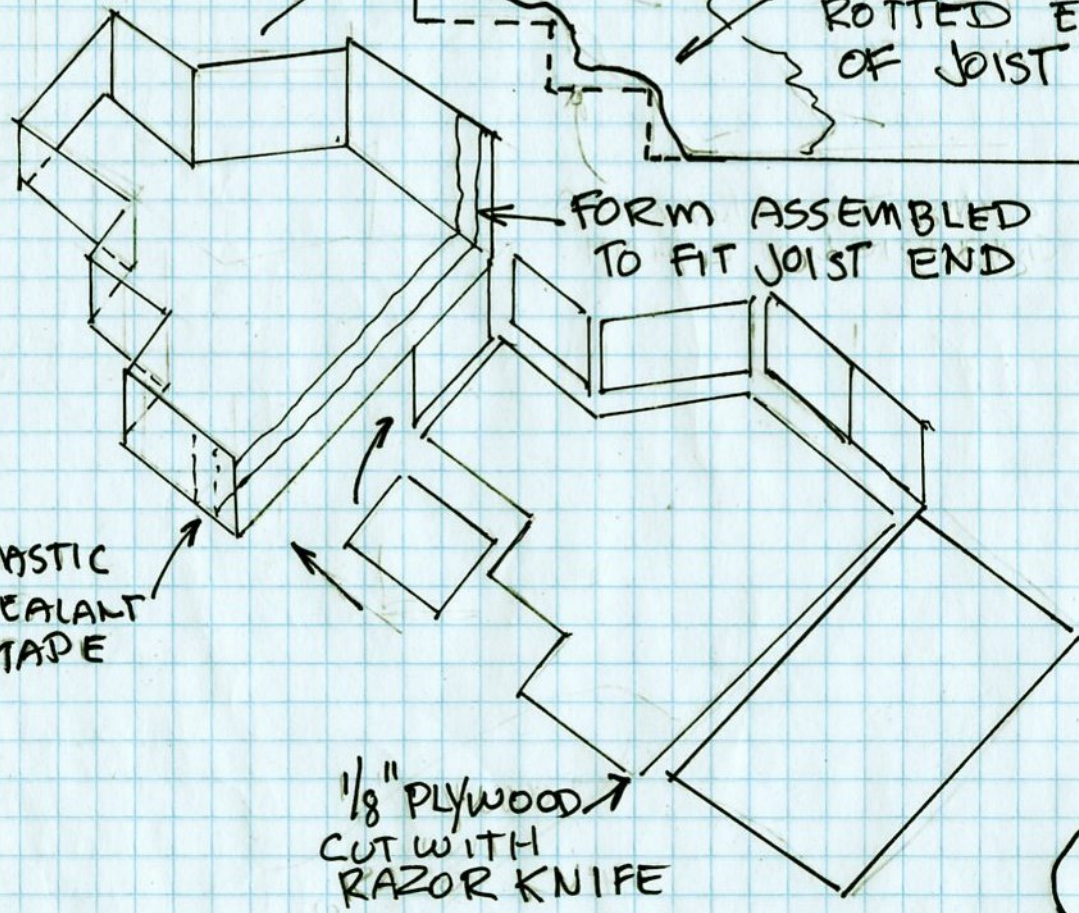 ROTTED E
OF JOIST
FORM ASSEMBLED
TO FIT JOIST END
ASTIC
EALANT
TAPE
1/8" PLYWOOD
CUT WITH
RAZOR KNIFE